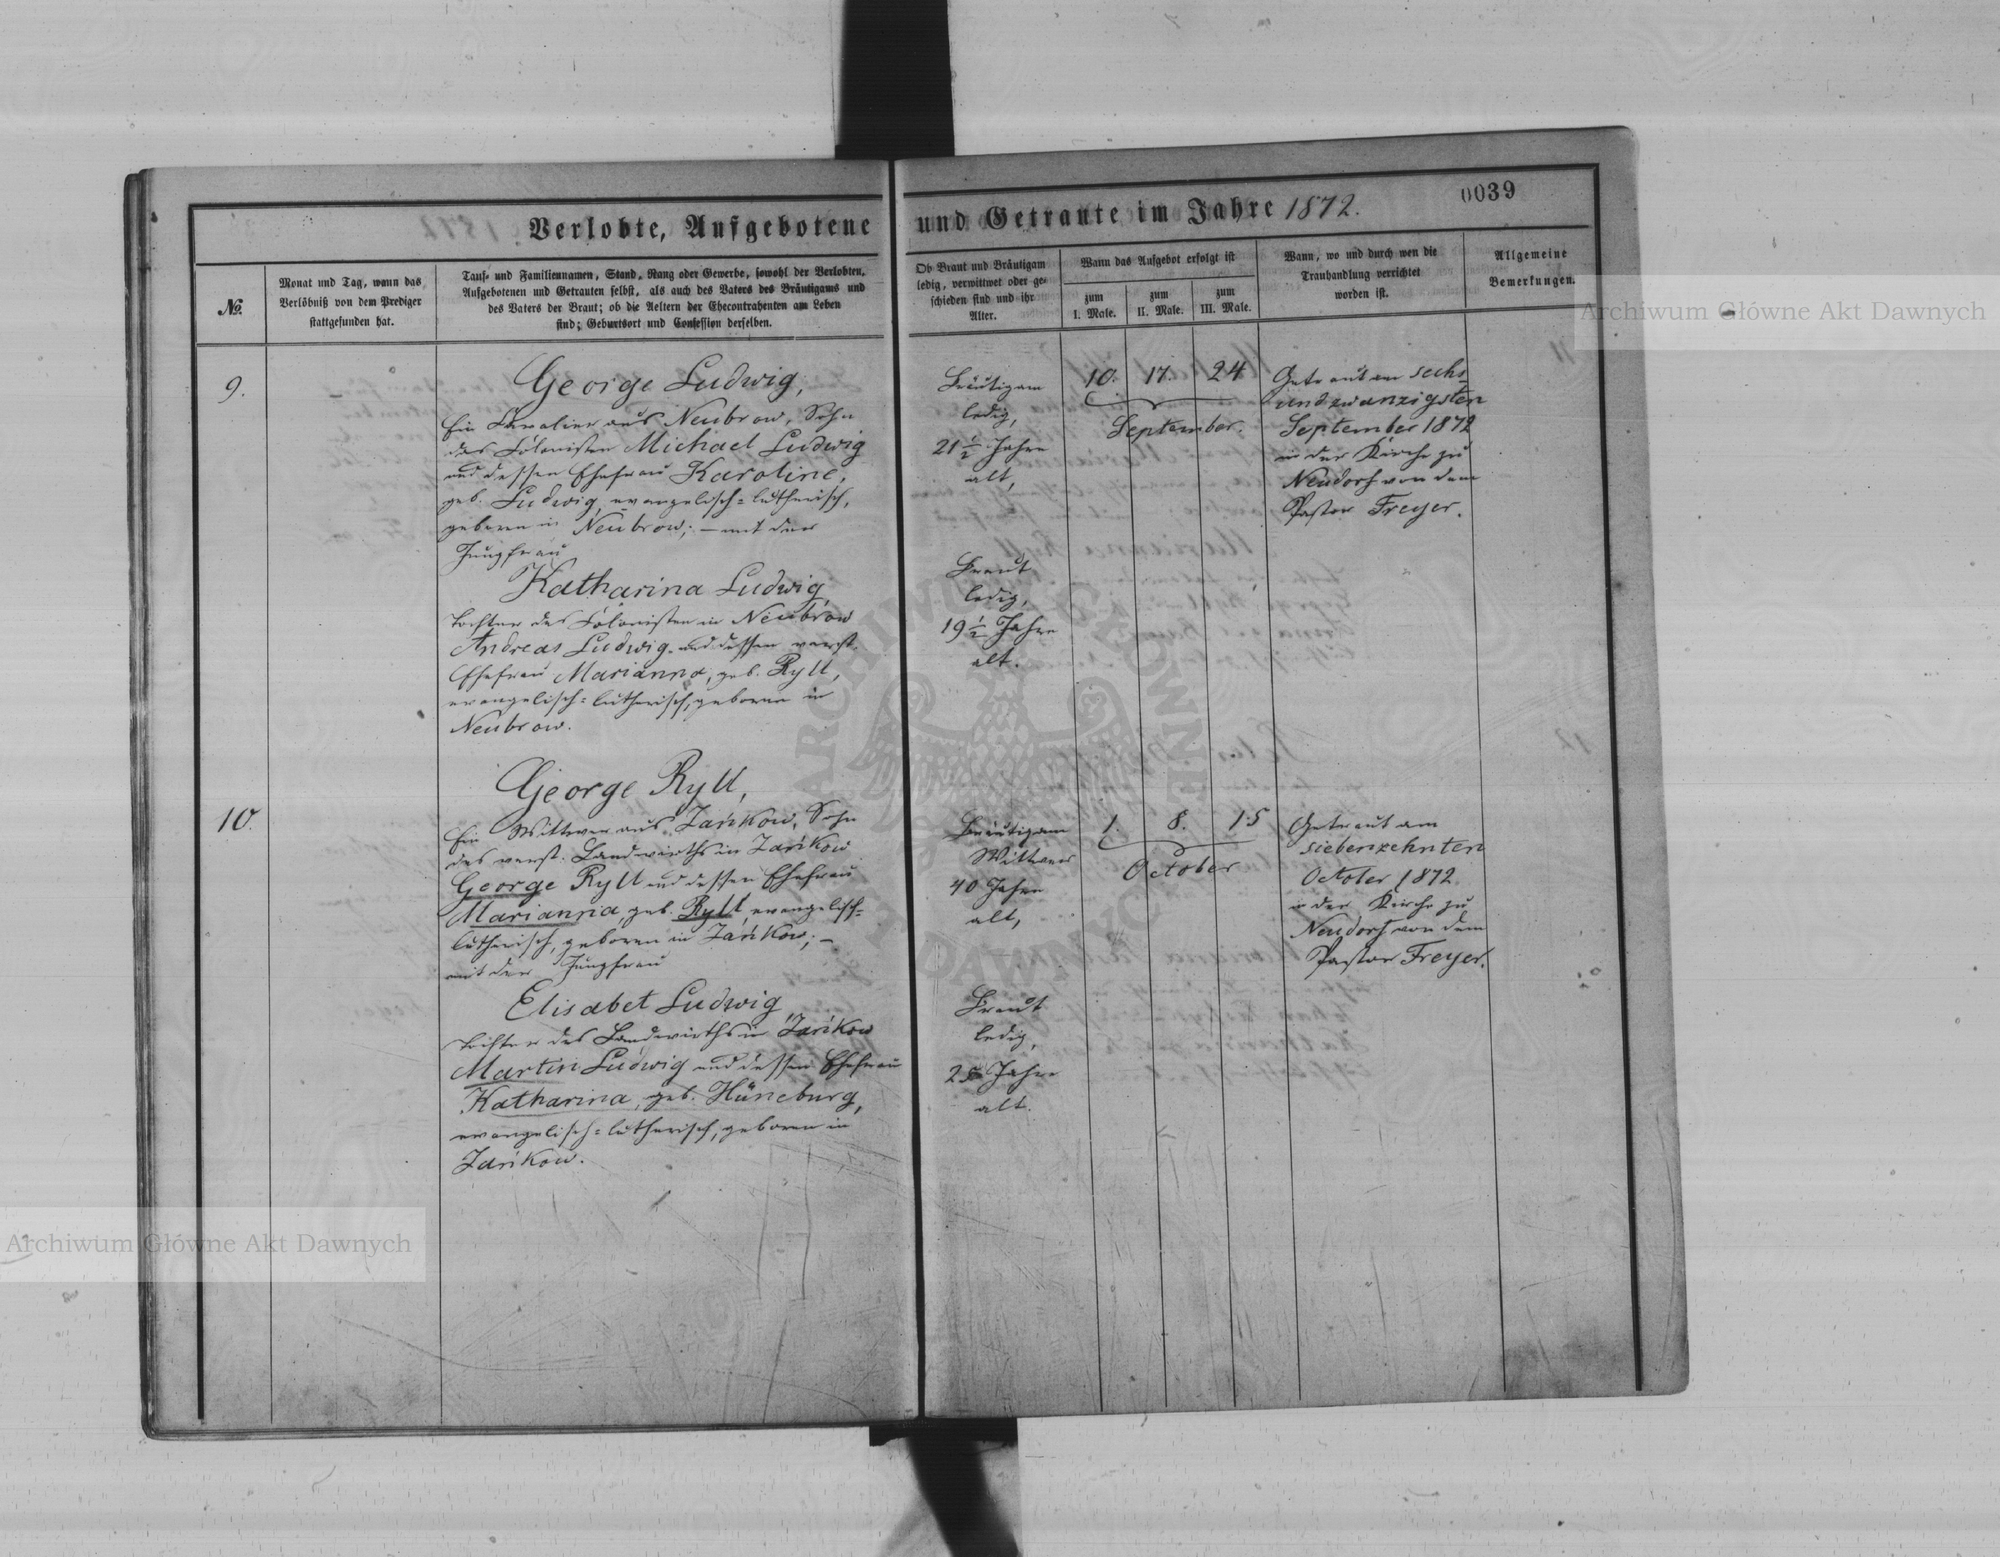 0039
Verlobte, Aufgebotene und Getraute im Jahre 1872.
№
Monat und Tag, wann das
Verlöbniß von dem Prediger
stattgefunden hat.
Tauf- und Familiennamen, Stand, Rang oder Gewerbe, sowohl der Verlobten,
Aufgebotenen und Getrauten selbst, als auch des Vaters des Bräutigams und
des Vaters der Braut; ob die Aeltern der Ehecontrahenten am Leben
sind; Geburtsort und Confession derselben.
Ob Braut und Bräutigam
ledig, verwittwet oder ge-
schieden sind und ihr
Alter.
Wann das Aufgebot erfolgt ist
zum
I. Male.
zum
II. Male.
zum
III. Male.
Wann, wo und durch wen die
Trauhandlung verrichtet
worden ist.
Allgemeine
Bemerkungen.
9.
George Ludwig,
Ein Cavalier aus Neubrow, Sohn
des Colonisten Michael Ludwig
und dessen Ehefrau Karoline,
geb. Ludwig, evangelisch=lutherisch,
geboren in Neubrow; – mit der
Jungfrau
Katharina Ludwig,
Tochter des Colonisten in Neubrow
Andreas Ludwig und dessen verst.
Ehefrau Marianna, geb. Ryll,
evangelisch=lutherisch, geboren in
Neubrow.
Bräutigam
ledig,
21 1/2 Jahre
alt,
Braut
ledig,
19 1/2 Jahre
alt.
10. 17. 24
September.
Getraut am sechs-
undzwanzigsten
September 1872
in der Kirche zu
Neudorf von dem
Pastor Freyer.
10.
George Ryll,
Ein Wittwer aus Zańkow, Sohn
des verst. Landwirths in Zańkow
George Ryll und dessen Ehefrau
Marianna, geb. Ryll, evangelisch=
lutherisch, geboren in Zańkow; –
mit der Jungfrau
Elisabet Ludwig
Tochter des Landwirths in Zańkow
Martin Ludwig und dessen Ehefrau
Katharina, geb. Hüneburg,
evangelisch=lutherisch, geboren in
Zańkow.
Bräutigam
Wittwer
40 Jahre
alt,
Braut
ledig,
Jahre
alt.
1. 8. 15
October
Getraut am
siebenzehnten
October 1872
in der Kirche zu
Neudorf von dem
Pastor Freyer.
Archiwum Główne Akt Dawnych
Archiwum Główne Akt Dawnych
ARCHIWUM GŁÓWNE AKT DAWNYCH